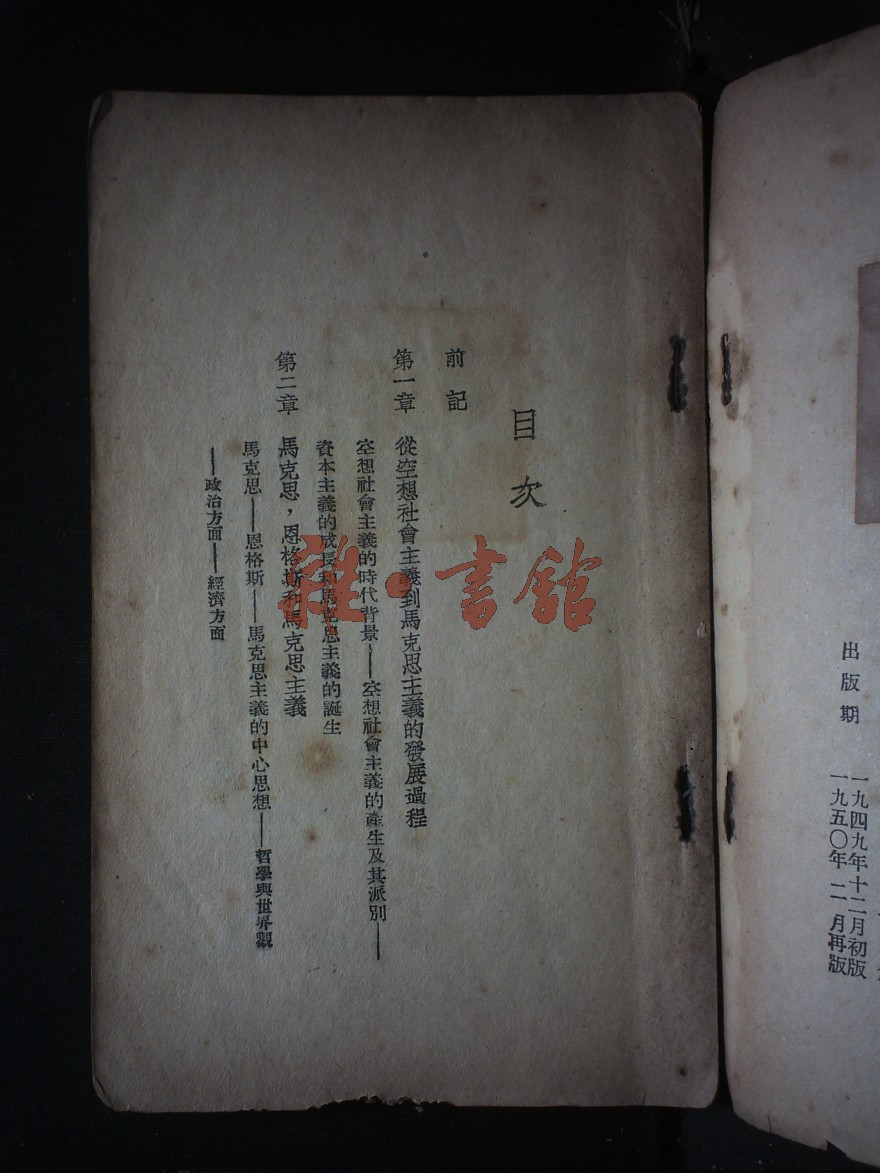 出版期
一九四九年十二月初版
一九五〇年二月再版
目次
前記
第一章 從空想社會主義到馬克思主義的發展過程
空想社會主義的時代背景——空想社會主義的產生及其派別——
資本主義的成長和馬克思主義的誕生
第二章 馬克思，恩格斯和馬克思主義
馬克思——恩格斯——馬克思主義的中心思想——哲學與世界觀
——政治方面——經濟方面
雜·書館